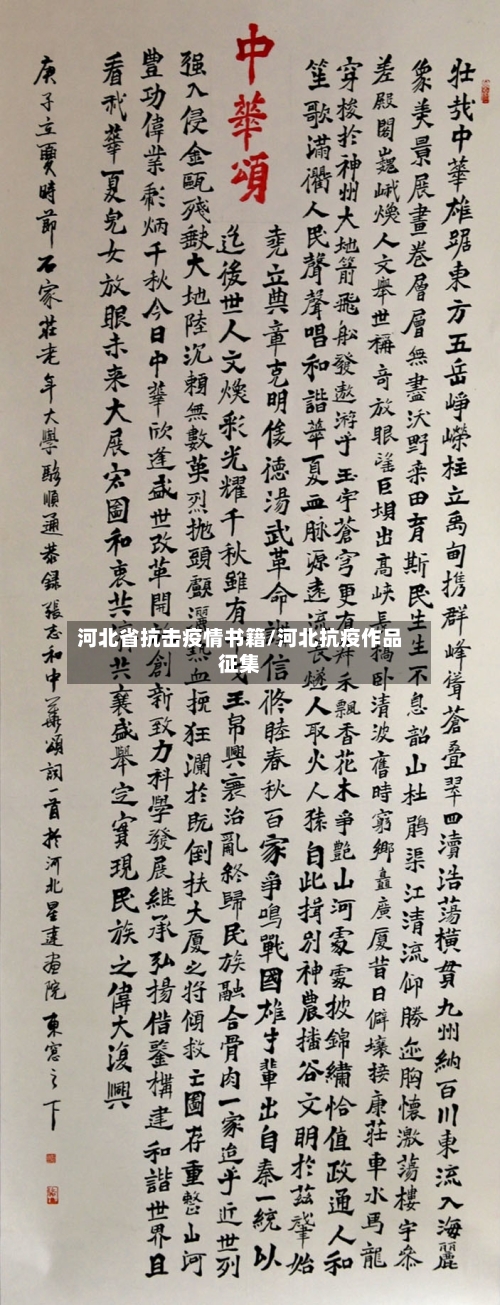 中華頌
壮哉中華雄踞東方五岳崢嶸柱立禹甸携群峰聳蒼叠翠四瀆浩荡横貫九州納百川東流入海麗
象美景展畫卷層層無盡沃野桒田育斯民生生不息韶山杜鵑渠江清流仰勝迹胸懷激荡樓宇叅
差殿閣巍峨焕人文舉世稱奇放眼望巨垻出高峡長橋卧清波舊時窮鄉矗廣厦昔日僻壤接康莊車水馬龍
穿梭於神州大地箭飛船發遨游乎玉宇蒼穹更有禾飄香花木争艷山河處處披錦繡恰值政通人和
笙歌滿衢人民聲聲唱和諧華夏血脉源遠流長燧人取火人猿自此揖别神農播谷文明於兹肇始
堯立典章克明俊德湯武革命信脩睦春秋百家争鳴戰國雄才輩出自秦一統以
迄後世人文焕彩光耀千秋雖有玉帛興衰治亂終歸民族融合骨肉一家迨乎近世列
强入侵金甌殘缺大地陸沉賴無數英烈抛頭顱灑熱血挽狂瀾於既倒扶大厦之将傾救亡圖存重整山河
豐功偉業彪炳千秋今日中華欣逢盛世改革開創新致力科學發展継承弘揚借鑒構建和諧世界且
看我華夏兒女放眼未来大展宏圖和衷共濟共襄盛舉定實現民族之偉大復興
庚子立夏時節石家莊老年大學駱順通恭録張志和中華頌詞一首於河北星建画院東窓之下
河北省抗击疫情书籍/河北抗疫作品
征集